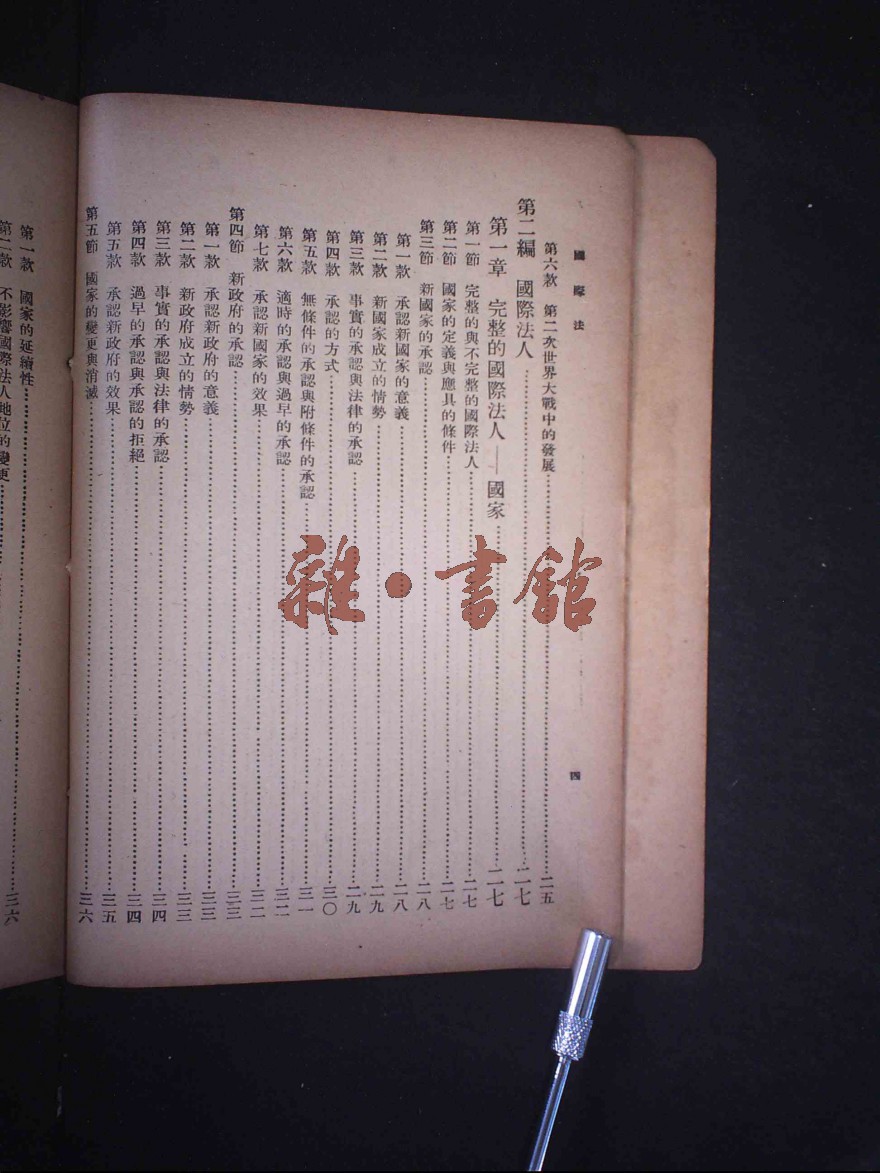 國際法
四
第六款 第二次世界大戰中的發展……二五
第二編 國際法人……二七
第一章 完整的國際法人——國家……二七
第一節 完整的與不完整的國際法人……二七
第二節 國家的定義與應具的條件……二七
第三節 新國家的承認……二八
第一款 承認新國家的意義……二八
第二款 新國家成立的情勢……二九
第三款 事實的承認與法律的承認……二九
第四款 承認的方式……三〇
第五款 無條件的承認與附條件的承認……三一
第六款 適時的承認與過早的承認……三二
第七款 承認新國家的效果……三二
第四節 新政府的承認……三三
第一款 承認新政府的意義……三三
第二款 新政府成立的情勢……三三
第三款 事實的承認與法律的承認……三四
第四款 過早的承認與承認的拒絕……三四
第五款 承認新政府的效果……三五
第五節 國家的變更與消滅……三六
第一款 國家的延續性……三六
第二款 不影響國際法人地位的變更……
雜·書館